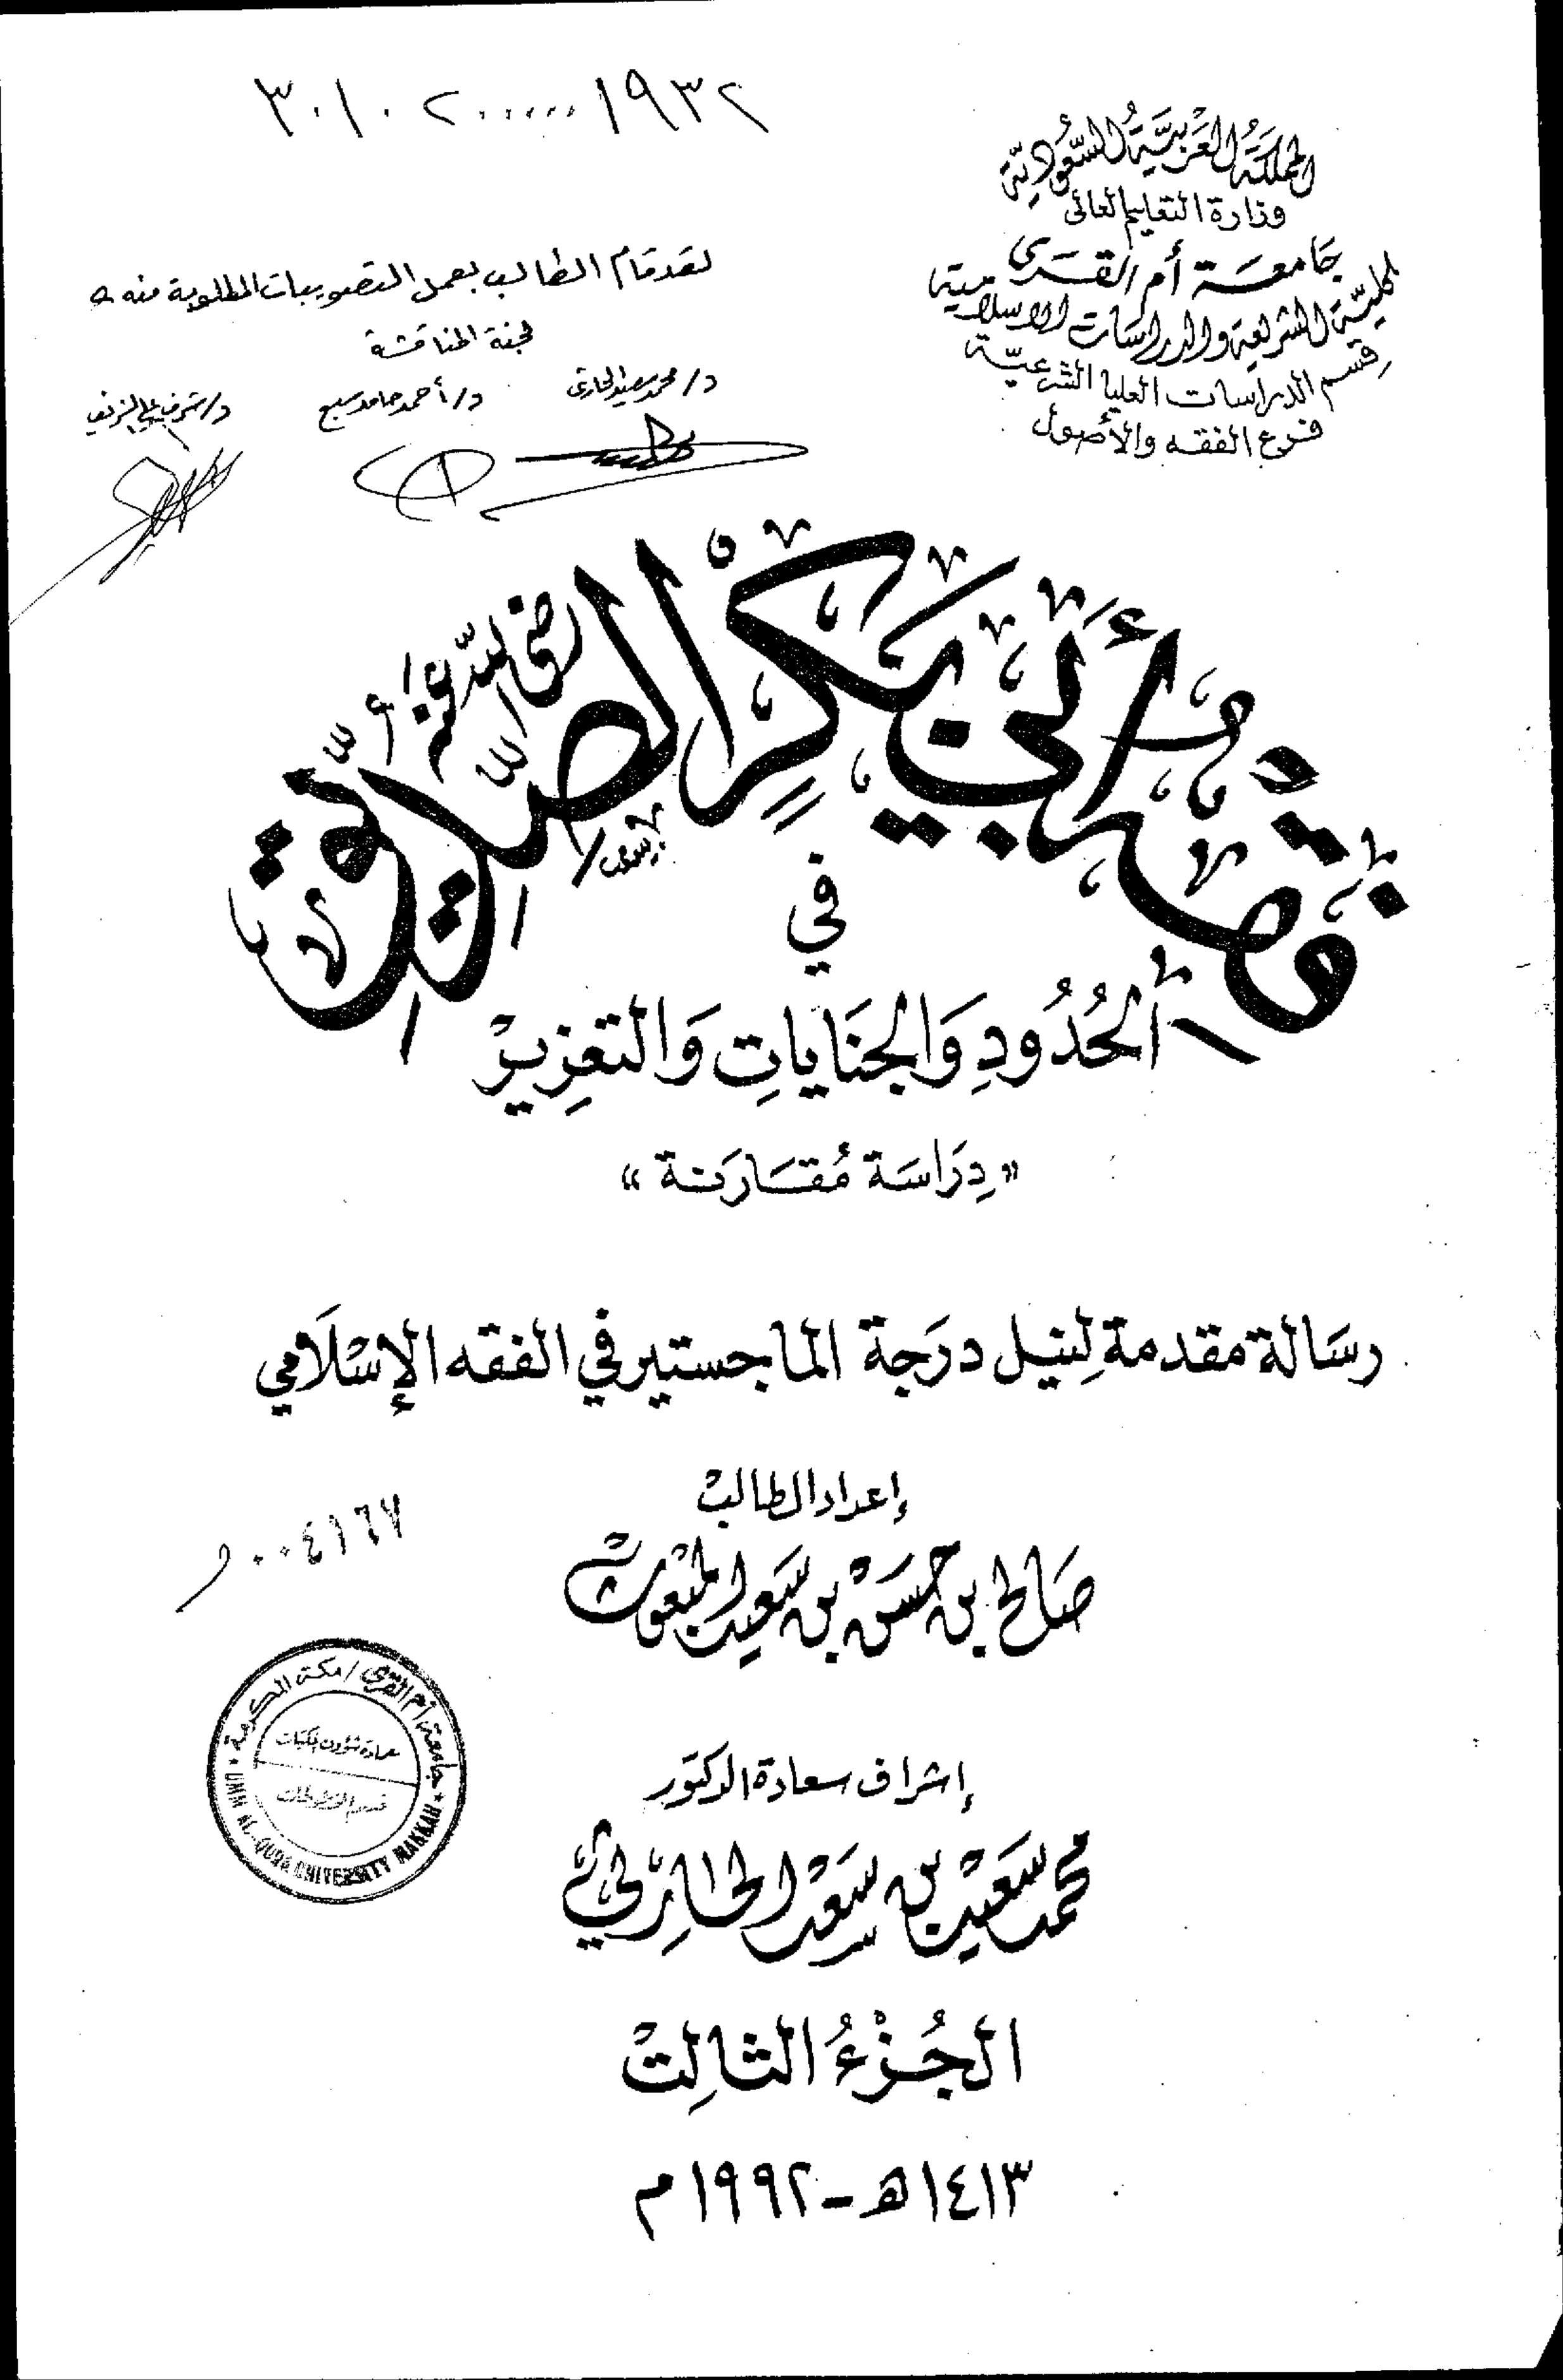 ٣٠١٠٢٠٠٠٠٠٠١٩٣٢
المَملكَةُ العَرَبيَّةُ السُّعُوديَّة
وزارة التعليم العالى
جَامعَة أم القرى
كلية الشريعة والدراسات الإسلامية
قسم الدراسات العليا الشرعيّة
فرع الفقه والأصول
لقد قام الطالب بعمل التصويبات المطلوبة منه
لجنة المناقشة
د/ محمد سعيد الحارثي
د/ أحمد حامد سبع
د/ شرف علي الشريف
فقه أبي بكرٍ الصّدّيق
رضي الله عنه
في
الحُدُودِ وَالجنَاياتِ وَالتعزِيرْ
«دِرَاسَة مُقَارَنة»
رسَالة مقدمة لِنيل درَجة الماجستير في الفقه الإسْلَامي
إعداد الطالبْ
صَالح بن حسَنْ بن سَعيد المبعوث
٠٠٤١٦٧
جامعة أم القرى / مكة المكرمة
عمادة شؤون المكتبات
قسم المخطوطات
UMM AL-QURA UNIVERSITY MAKKAH
إشراف سعادة الدكتور
محمد سَعيْد بن سَعْد الحارثي
الجُزْءُ الثالِثْ
١٤١٣هـ - ١٩٩٢م